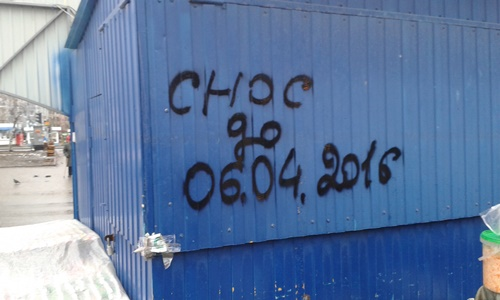 СНОС
до
06.04.2016